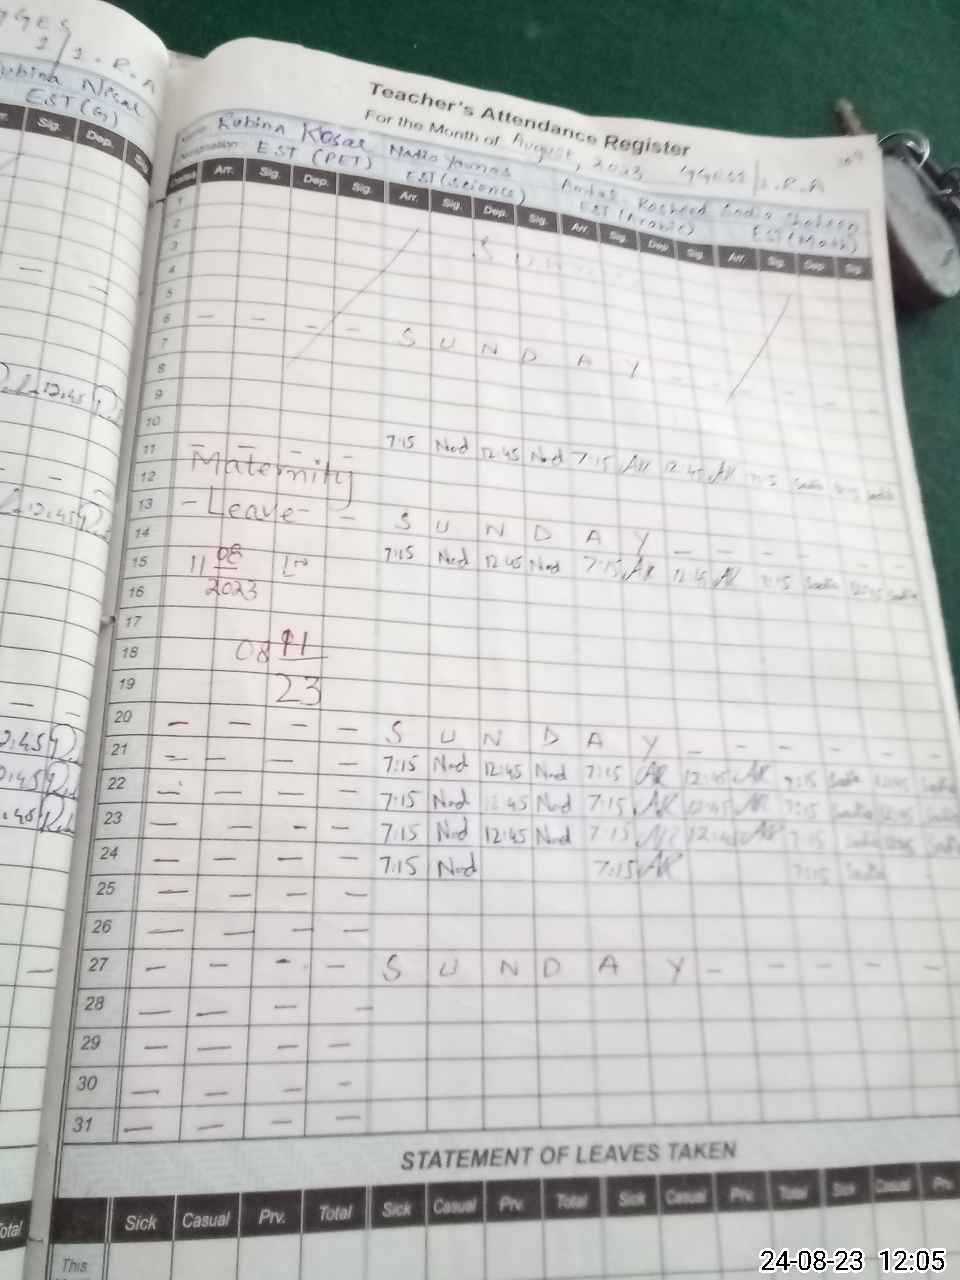 Teacher's Attendance Register
For the Month of August, 2023 GGES 1.R.A
Name Rubina Kosar Nadia Younas Rasheed Sadia
Designation EST (PET) EST (Science) EST (Arabic) EST (Math)
Dates Arr. Sig. Dep. Sig. Arr. Sig. Dep. Sig. Arr. Sig. Dep Sig. Arr. Sig. Dep Sig
1
2
3
4
5
6 — — — — S U N D A Y — —
7
8
9
10
11 — — — — 7:15 Nad 12:45 Nad 7:15 AR 12:45 AR 7:15 Sadia Sadia
Maternity
12
13 – Leave – – S U N D A Y — — — —
14 7:15 Nad 12:45 Nad 7:15 AR 12:45 AR 7:15 Sadia 12:45 Sadia
15 11 08 to
16 2023
17
18 08 11
19 23
20 — — — — S U N D A Y — — — — — —
21 — — — — 7:15 Nad 12:45 Nad 7:15 AR 12:45 AR 7:15 Sadia 12:45 Sadia
22 — — — — 7:15 Nad 12:45 Nad 7:15 AR 12:45 AR 7:15 Sadia 12:45 Sadia
23 — — — — 7:15 Nad 12:45 Nad 7:15 AR 12:45 AR 7:15 Sadia 12:45 Sadia
24 — — — — 7:15 Nad 7:15 AR 7:15 Sadia
25 — — — —
26 — — — —
27 — — — — S U N D A Y — — — — — —
28 — — — —
29 — — — —
30 — — — —
31 — — — —
STATEMENT OF LEAVES TAKEN
Sick Casual Prv. Total Sick Casual Prv. Total Sick Casual Prv. Total Sick Casual Prv.
This
24-08-23 12:05
GGES
1/1.R.A
Rubina
EST (G)
Sig. Dep.
12:45
12:45
12:45
Total